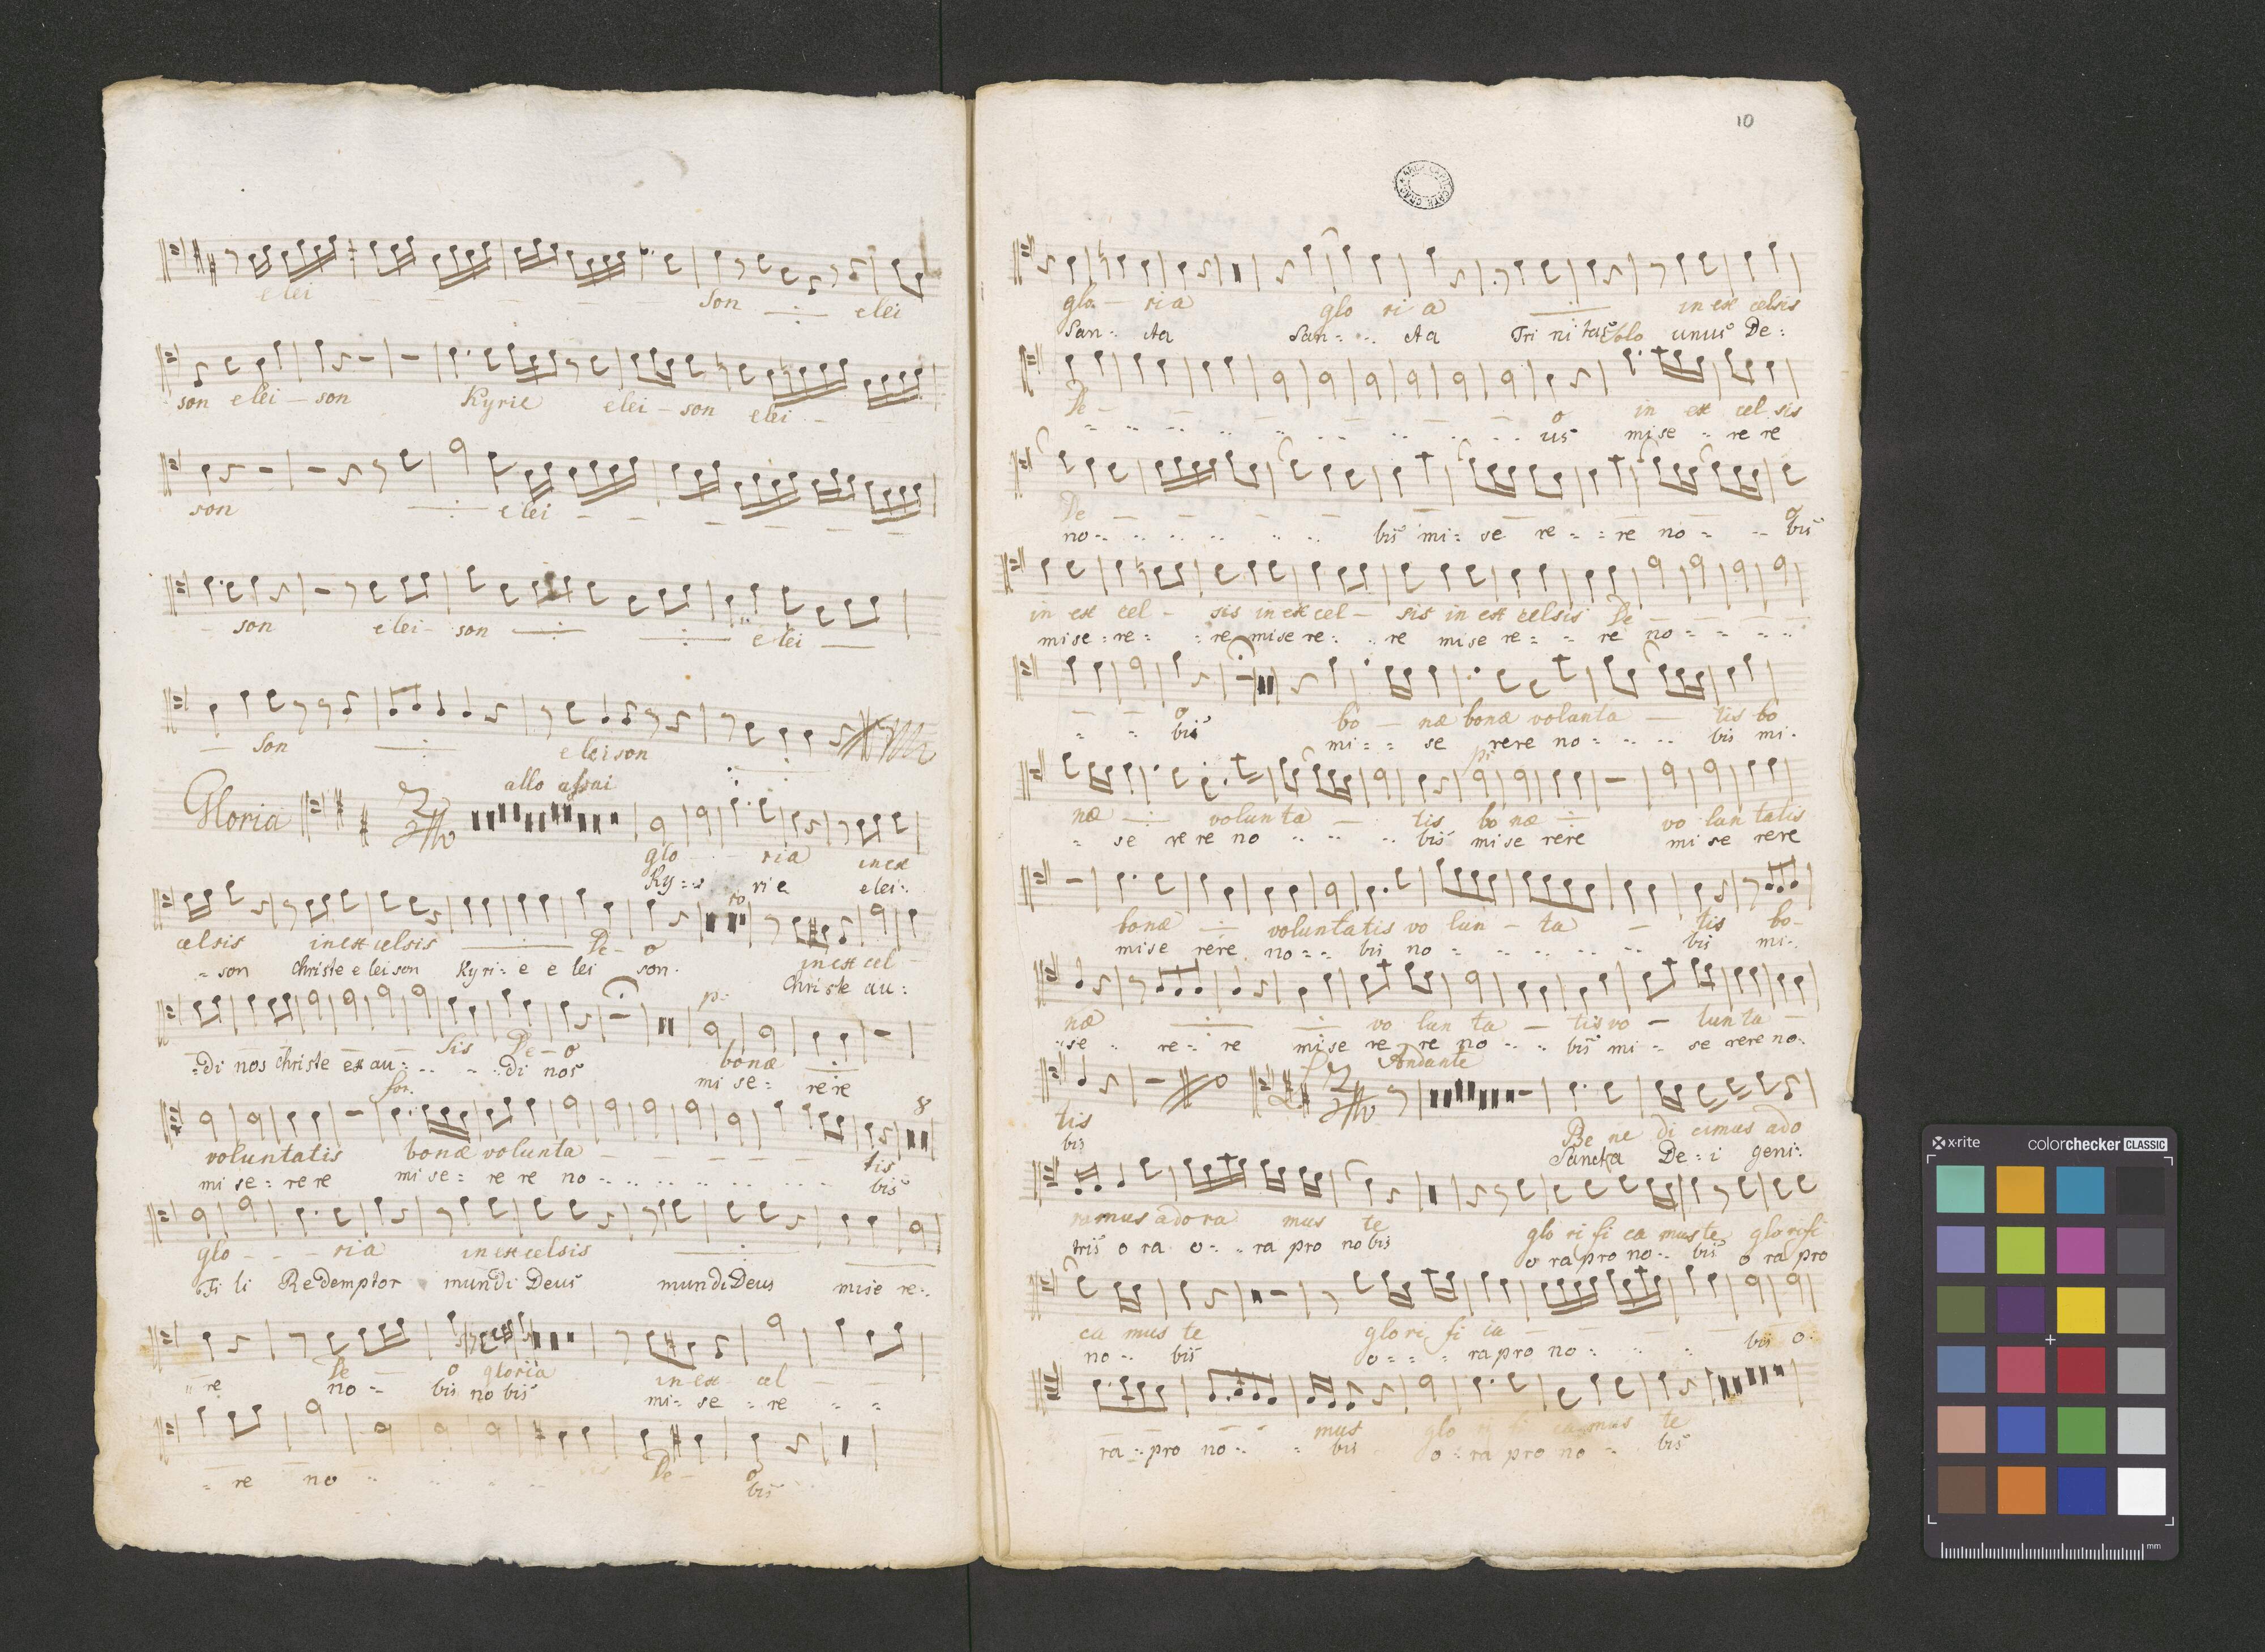 elei - - - - son elei
son elei - son Kyrie elei - son elei -
son elei - - - - - -
- son elei - son elei -
- son eleison
allo assai
Gloria
glo - ria in ex
Ky = = rie elei =
10
celsis in excelsis De - o in ex cel -
= son Christe eleison Kyri = e elei son. Christe au =
p:
sis De - o bonæ
= di nos Christe ex au = .. .. di nos mi se = re re
for. 8
voluntatis bonæ volunta - - - - - - tis
mi se = re re mi se = re re no = .. .. .. .. .. bis
glo - - - ria in excelsis
Fi li Redemptor mundi Deus mundi Deus mise re =
De - o gloria in ex - cel - -
= re no = bis no bis mi = se = re = =
De - o
= re no = bis
10
glo - ria glo ri a in ex celsis
San = cta San = .. cta Tri ni tas unus De =
De - - - - - - o in ex cel sis
= .. .. .. .. .. .. .. us mi se .. re re
De - - - - - - - o
no = .. .. .. .. .. bis mi = se re = = re no = .. bis
in ex cel - sis in ex cel - sis in ex celsis De - - - -
mi se = re = = re mi se re = .. re mi se re = = re no = = = ..
- - o bo - næ bonæ volunta - tis bo
= = bis mi = = se re re no = .. .. bis mi =
pi
næ volunta - tis bo næ vo lun tatis
= se re re no .. .. .. bis mi se rere mi se rere
bonæ voluntatis vo lun - ta - tis bo -
mi se rere no = = bis no = .. .. .. .. .. bis mi =
næ vo lun ta - tis vo - lun ta -
= se .. re = re mi se re re no = .. bis mi = se rere no =
f Andante
tis Be ne di cimus ado
bis Sancta De = i geni =
ramus adora mus te glo ri fi ca mus te glorifi
tris o ra o = .. ra pro nobis o ra pro no = bis o ra pro
ca mus te glo ri fi ca - - - - -
no = bis o = = = ra pro no = .. = bis o =
- - - - mus glo ri fi camus te
ra = pro no = = bis o = ra pro no = bis